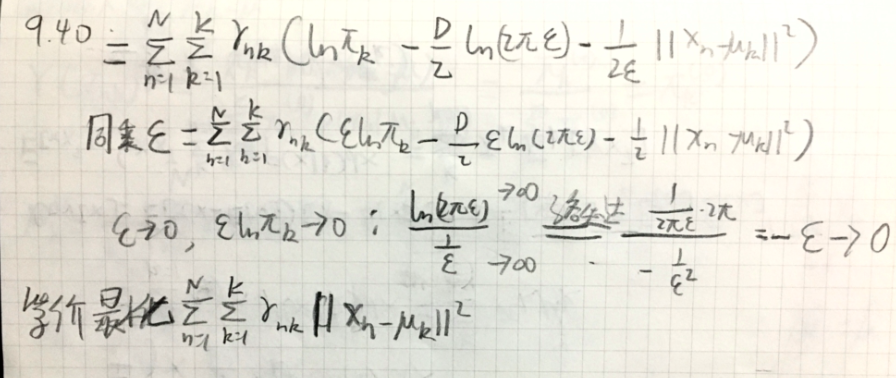 9.40 = \sum_{n=1}^{N} \sum_{k=1}^{K} γ_{nk} (ln π_k - \frac{D}{2} ln(2πε) - \frac{1}{2ε} ||x_n - μ_k||^2)
同乘 ε = \sum_{n=1}^{N} \sum_{k=1}^{K} γ_{nk} (ε ln π_k - \frac{D}{2} ε ln(2πε) - \frac{1}{2} ||x_n - μ_k||^2)
ε→0, ε ln π_k → 0 ; \frac{ln(2πε)}{\frac{1}{ε}} →∞ →∞ 洛必达 \frac{\frac{1}{2πε} · 2π}{-\frac{1}{ε^2}} = -ε → 0
等价最化 \sum_{n=1}^{N} \sum_{k=1}^{K} γ_{nk} ||x_n - μ_k||^2